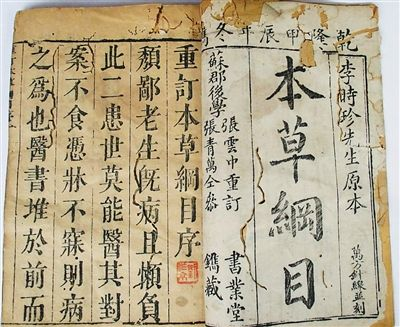 乾隆甲辰年冬鐫
李時珍先生原本
萬方針線並刻
本草綱目
蘇郡後學
張雲中重訂
張青萬仝參
書業堂鐫藏
重訂本草綱目序
頹鄙老生既病且懶負
此二患世莫能醫其對
案不食憑牀不寐則病
之爲也醫書堆於前而